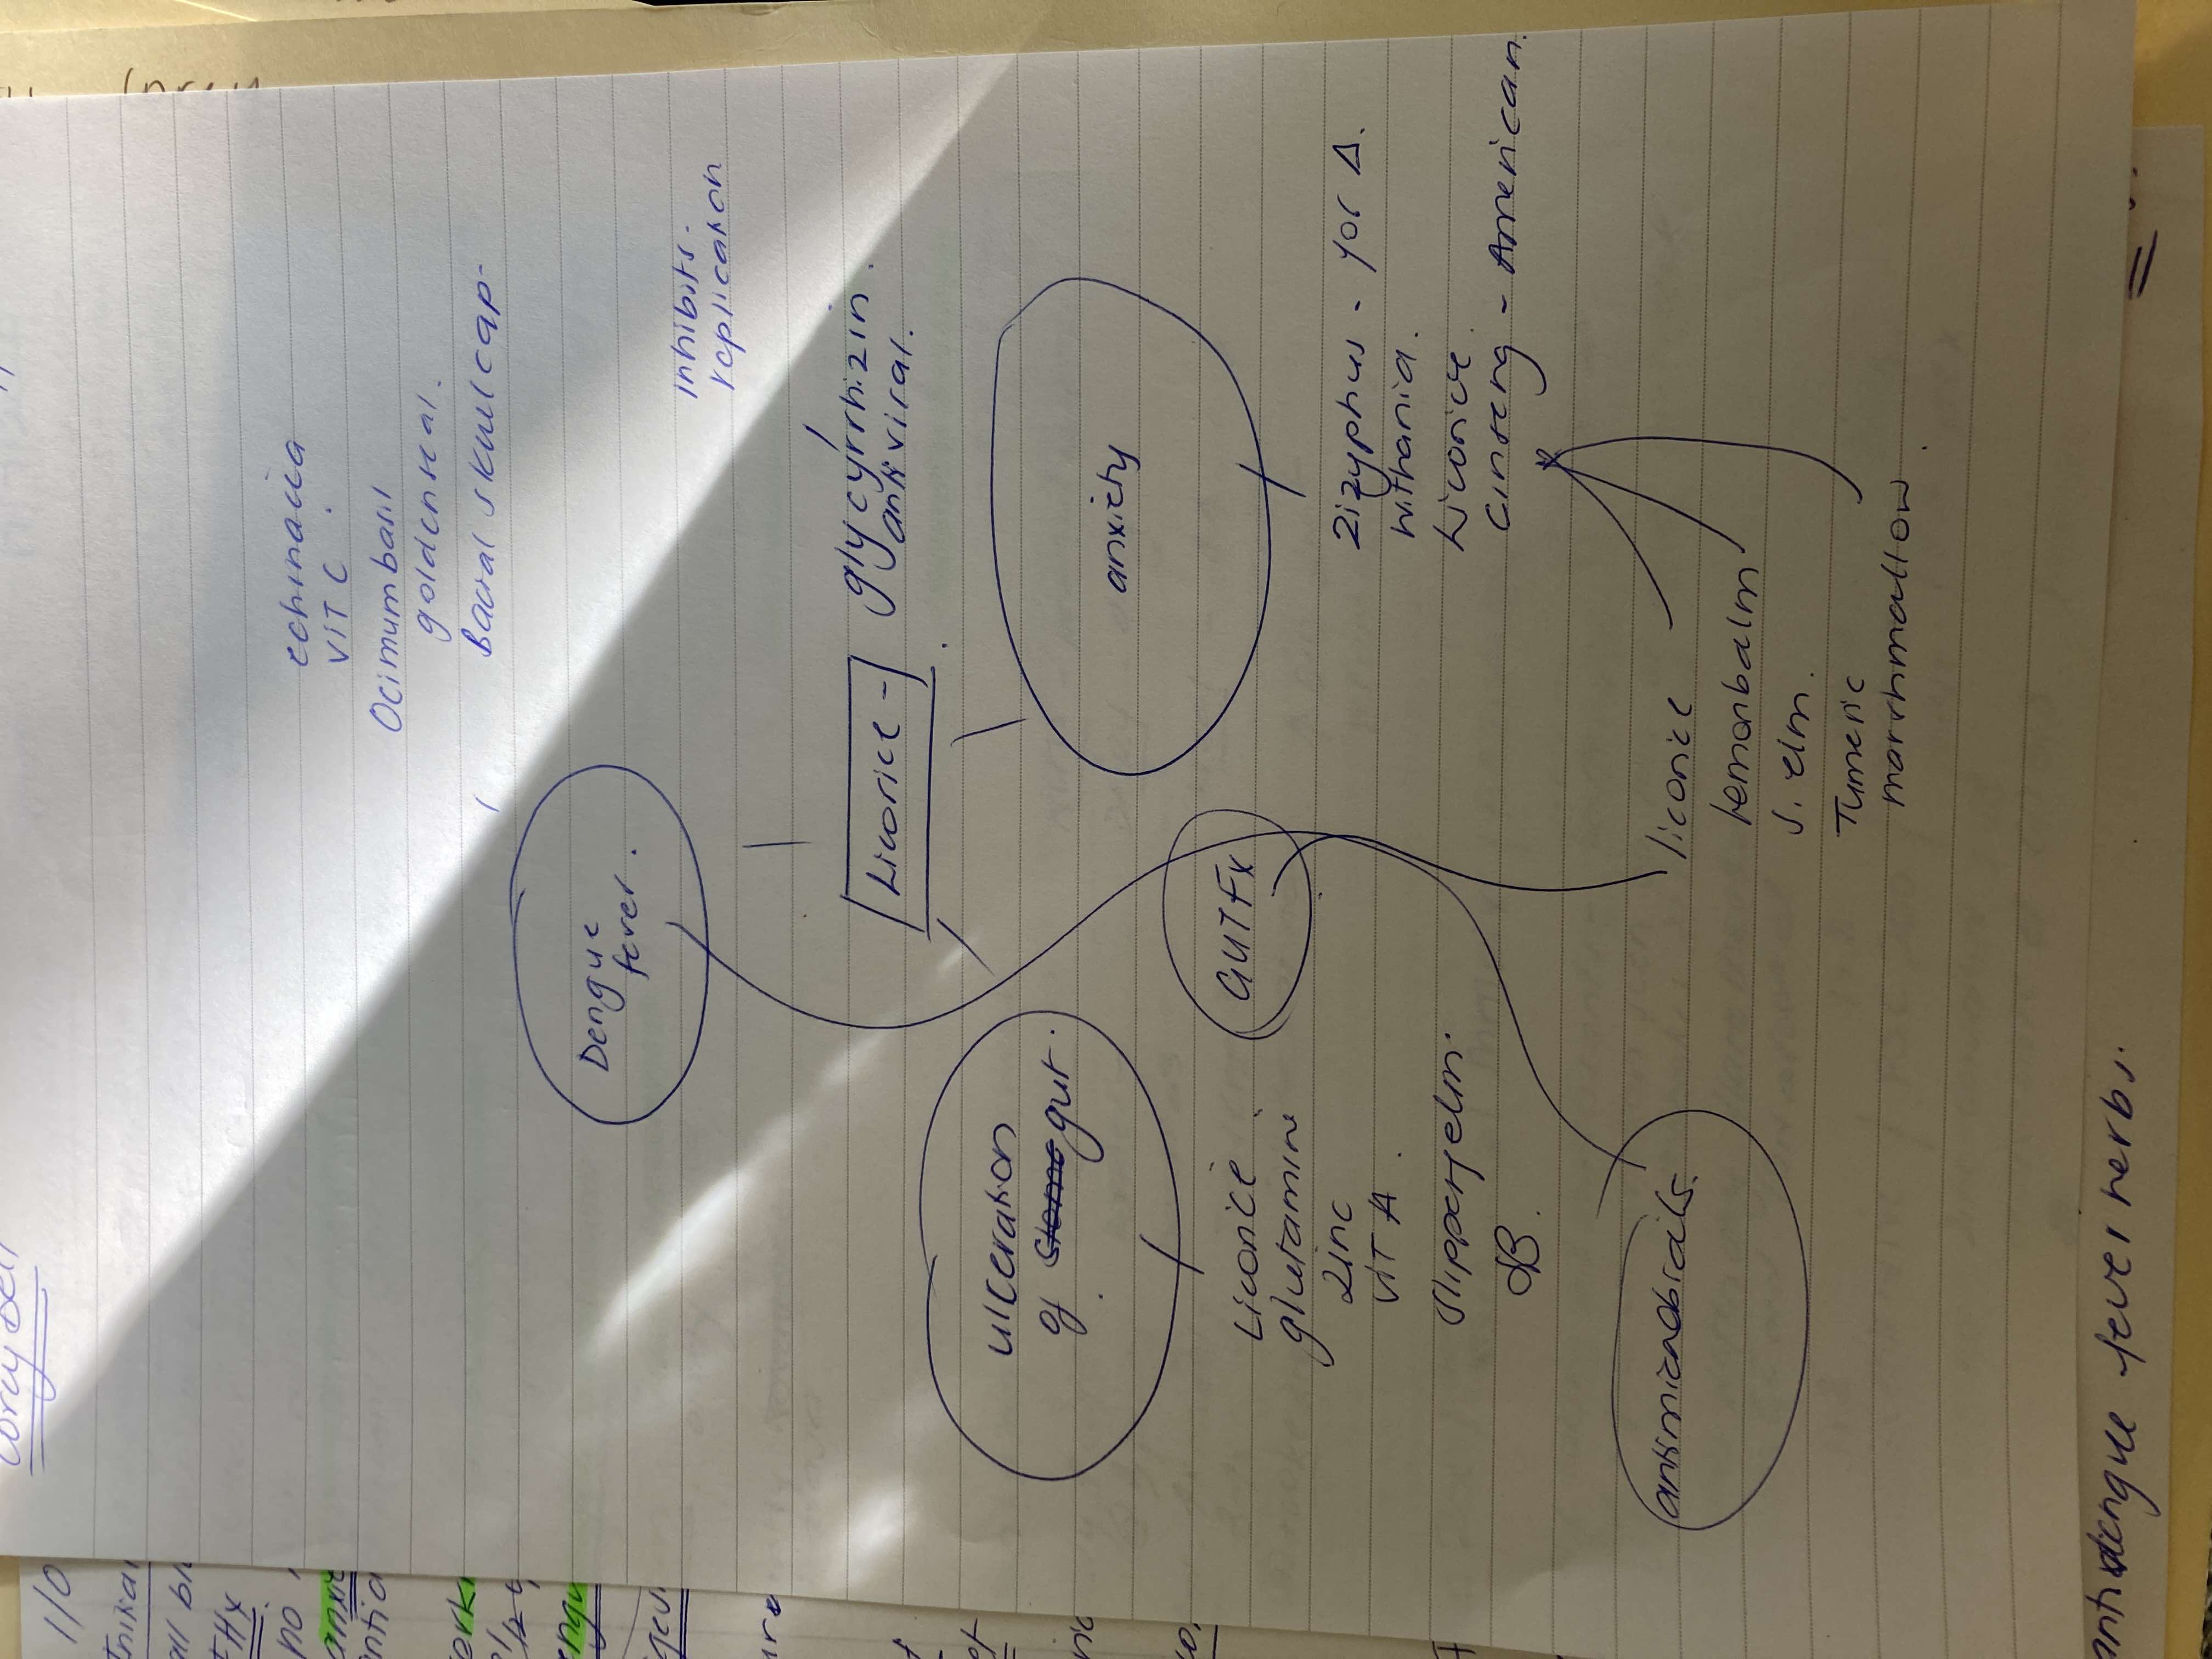 echinacea
VIT C
Ocimumbasil
goldenseal.
Baical skullcap-
inhibits.
replication
Dengue
fever.
Licorice - glycyrrhizin.
antiviral.
ulceration
of stoma gut.
anxiety
GUTFX
Licorice
glutamine
zinc
VIT A
slipperyelm.
SB.
Zizyphus - for Δ.
withania.
Licorice
Ginseng - American.
licorice
lemonbalm
S. elm.
Tumeric
marshmallow
antimicrobials.
antidengue fever herbs.